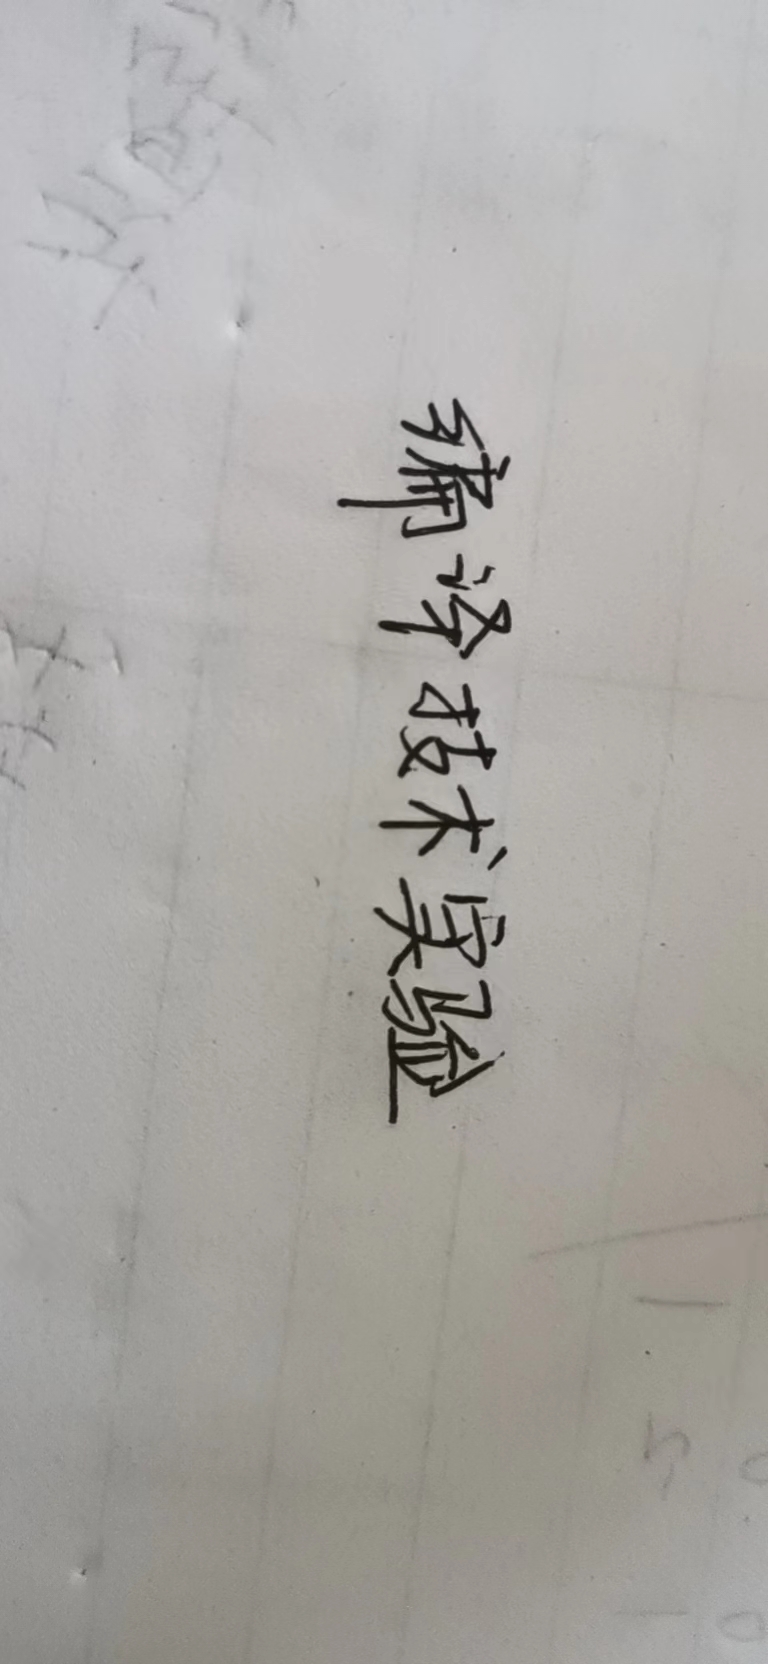 编译技术实验